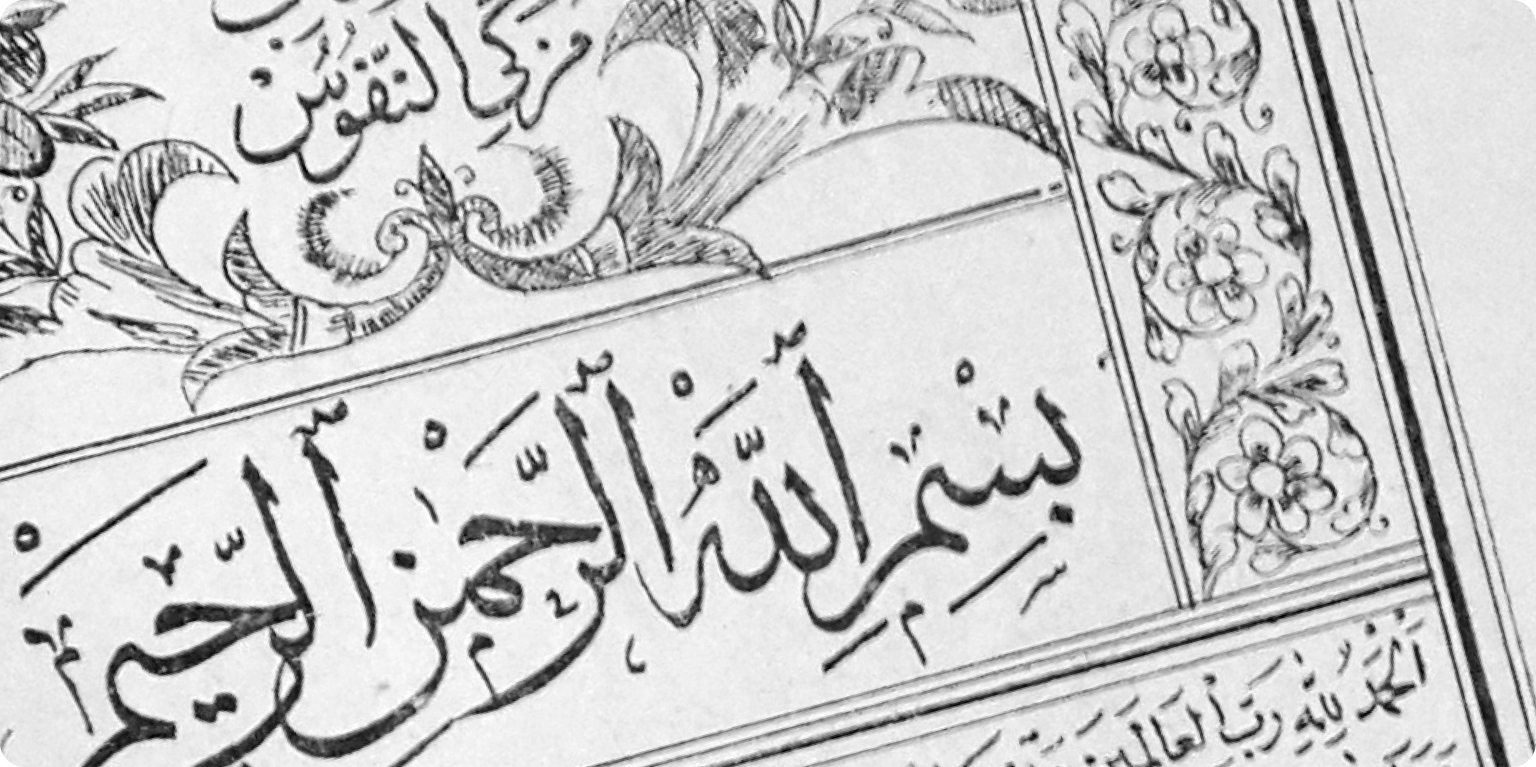 مزكي النفوس
بِسْمِ ٱللَّهِ ٱلرَّحْمَٰنِ ٱلرَّحِيمِ
ٱلْحَمْدُ لِلَّهِ رَبِّ ٱلْعَالَمِينَ